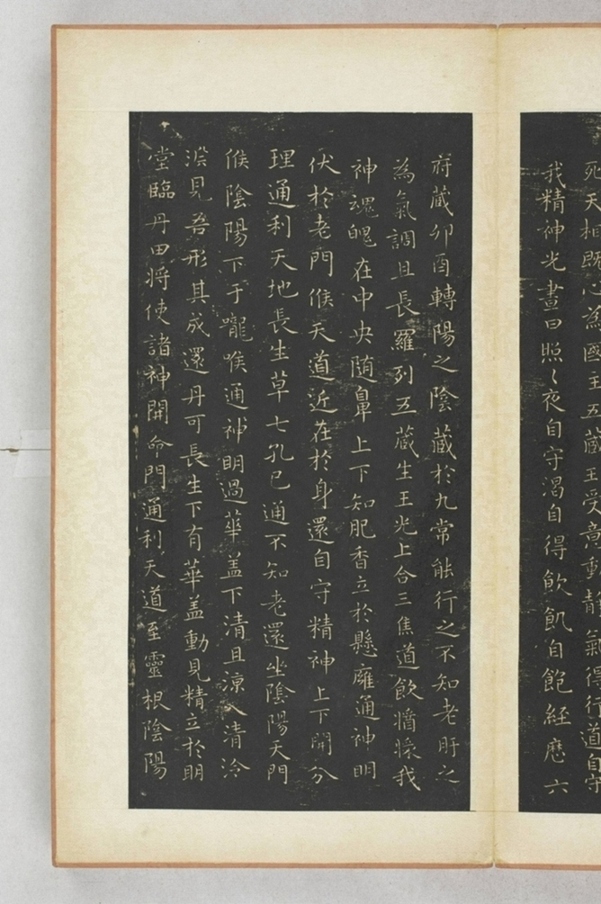 死天相既心為國主五蔵王受意動静氣得行道自守
我精神光晝日照〻夜自守渴自得飲飢自飽経歴六
府蔵卯酉轉陽之陰蔵於九常能行之不知老肝之
為氣調且長羅列五蔵生王光上合三焦道飲醬漿我
神魂魄在中央随鼻上下知肥香立於懸廱通神明
伏於老門候天道近在於身還自守精神上下開分
理通利天地長生草七孔已通不知老還坐陰陽天門
候陰陽下于嚨喉通神明過華盖下清且涼入清泠
淵見吾形其成還丹可長生下有華盖動見精立於明
堂臨丹田将使諸神開命門通利天道至靈根陰陽